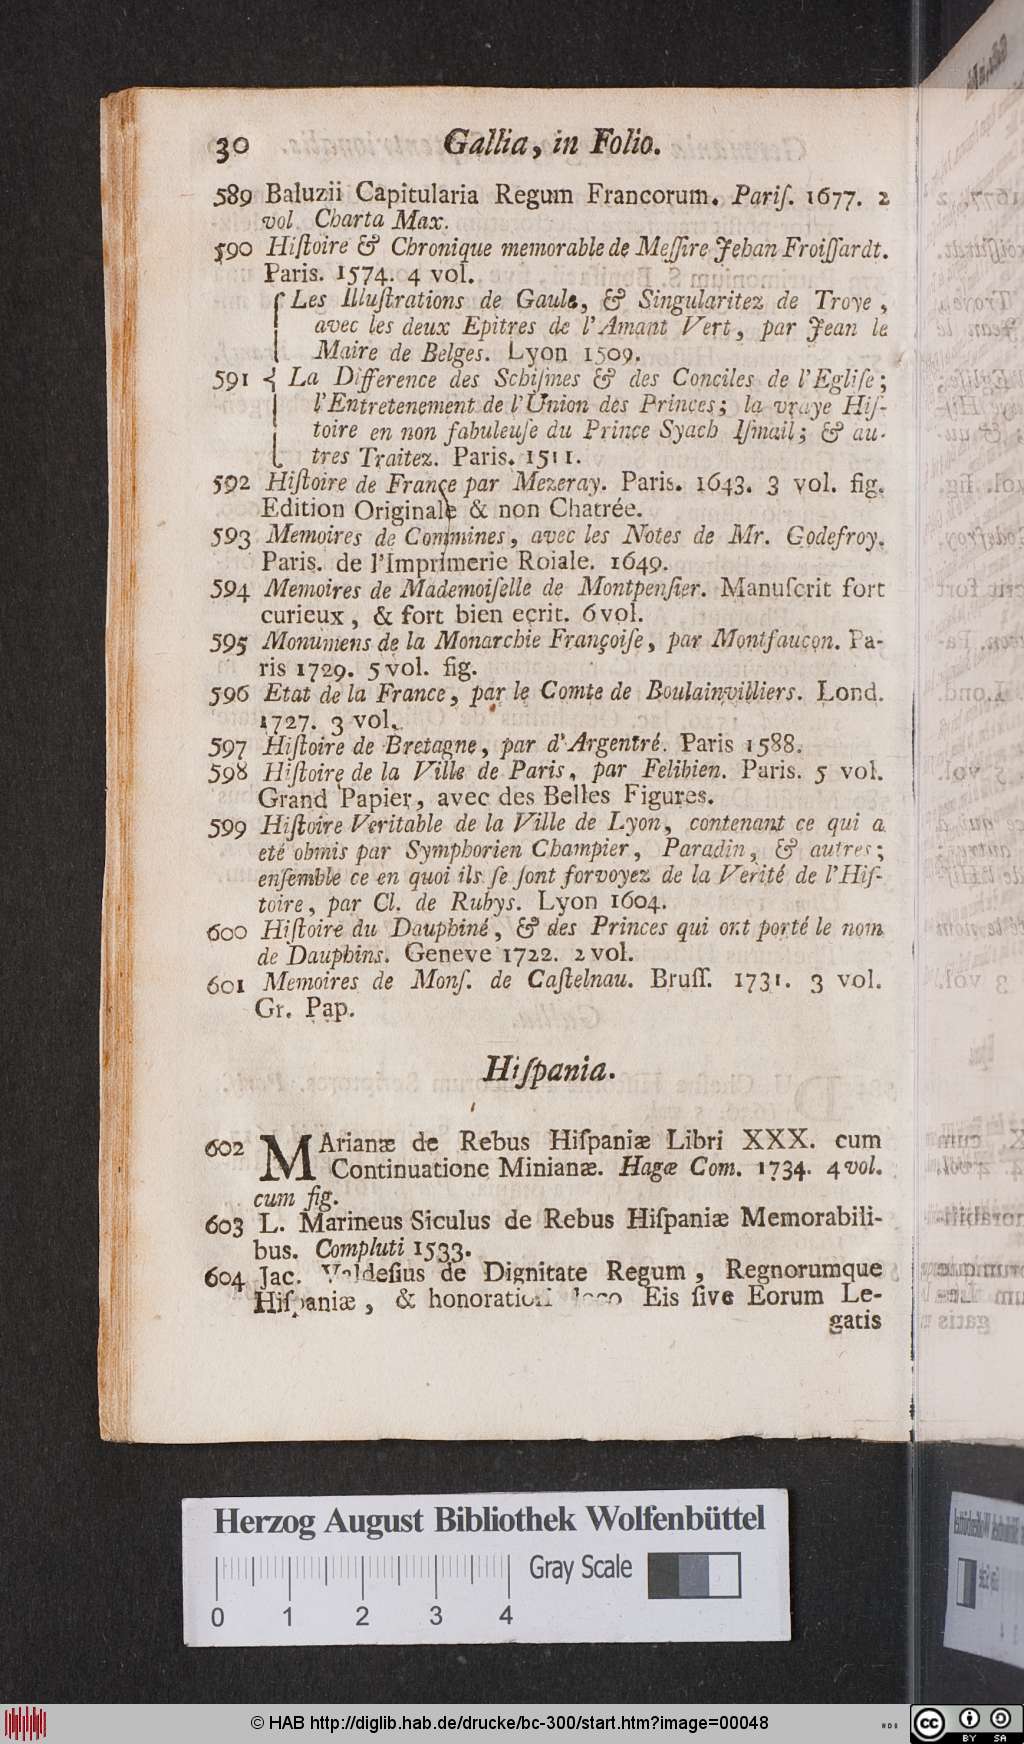 30 Gallia, in Folio.
589 Baluzii Capitularia Regum Francorum. Pariſ. 1677. 2
vol Charta Max.
590 Hiſtoire & Chronique memorable de Meſſire Jehan Froiſſardt.
Paris. 1574. 4 vol.
Les Illuſtrations de Gaule, & Singularitez de Troye,
avec les deux Epitres de l'Amant Vert, par Jean le
Maire de Belges. Lyon 1509.
591 { La Difference des Schiſmes & des Conciles de l'Egliſe;
l'Entretenement de l'Union des Princes; la vraye Hiſ-
toire en non fabuleuſe du Prince Syach Iſmail; & au-
tres Traitez. Paris. 1511.
592 Hiſtoire de France par Mezeray. Paris. 1643. 3 vol. fig.
Edition Originale & non Chatrée.
593 Memoires de Commines, avec les Notes de Mr. Godefroy.
Paris. de l'Imprimerie Roiale. 1649.
594 Memoires de Mademoiſelle de Montpenſier. Manuſcrit fort
curieux, & fort bien ecrit. 6 vol.
595 Monumens de la Monarchie Françoiſe, par Montfaucon. Pa-
ris 1729. 5 vol. fig.
596 Etat de la France, par le Comte de Boulainvilliers. Lond.
1727. 3 vol.
597 Hiſtoire de Bretagne, par d'Argentré. Paris 1588.
598 Hiſtoire de la Ville de Paris, par Felibien. Paris. 5 vol.
Grand Papier, avec des Belles Figures.
599 Hiſtoire Veritable de la Ville de Lyon, contenant ce qui a
eté obmis par Symphorien Champier, Paradin, & autres;
enſemble ce en quoi ils ſe ſont forvoyez de la Verité de l'Hiſ-
toire, par Cl. de Rubys. Lyon 1604.
600 Hiſtoire du Dauphiné, & des Princes qui ont porté le nom
de Dauphins. Geneve 1722. 2 vol.
601 Memoires de Monſ. de Caſtelnau. Bruſſ. 1731. 3 vol.
Gr. Pap.
Hiſpania.
602 MArianæ de Rebus Hiſpaniæ Libri XXX. cum
Continuatione Minianæ. Hagæ Com. 1734. 4 vol.
cum fig.
603 L. Marineus Siculus de Rebus Hiſpaniæ Memorabili-
bus. Compluti 1533.
604 Jac. Valdeſius de Dignitate Regum, Regnorumque
Hiſpaniæ, & honoratiori loco Eis ſive Eorum Le-
gatis
Herzog August Bibliothek Wolfenbüttel
Gray Scale
0 1 2 3 4
© HAB http://diglib.hab.de/drucke/bc-300/start.htm?image=00048
cc BY SA